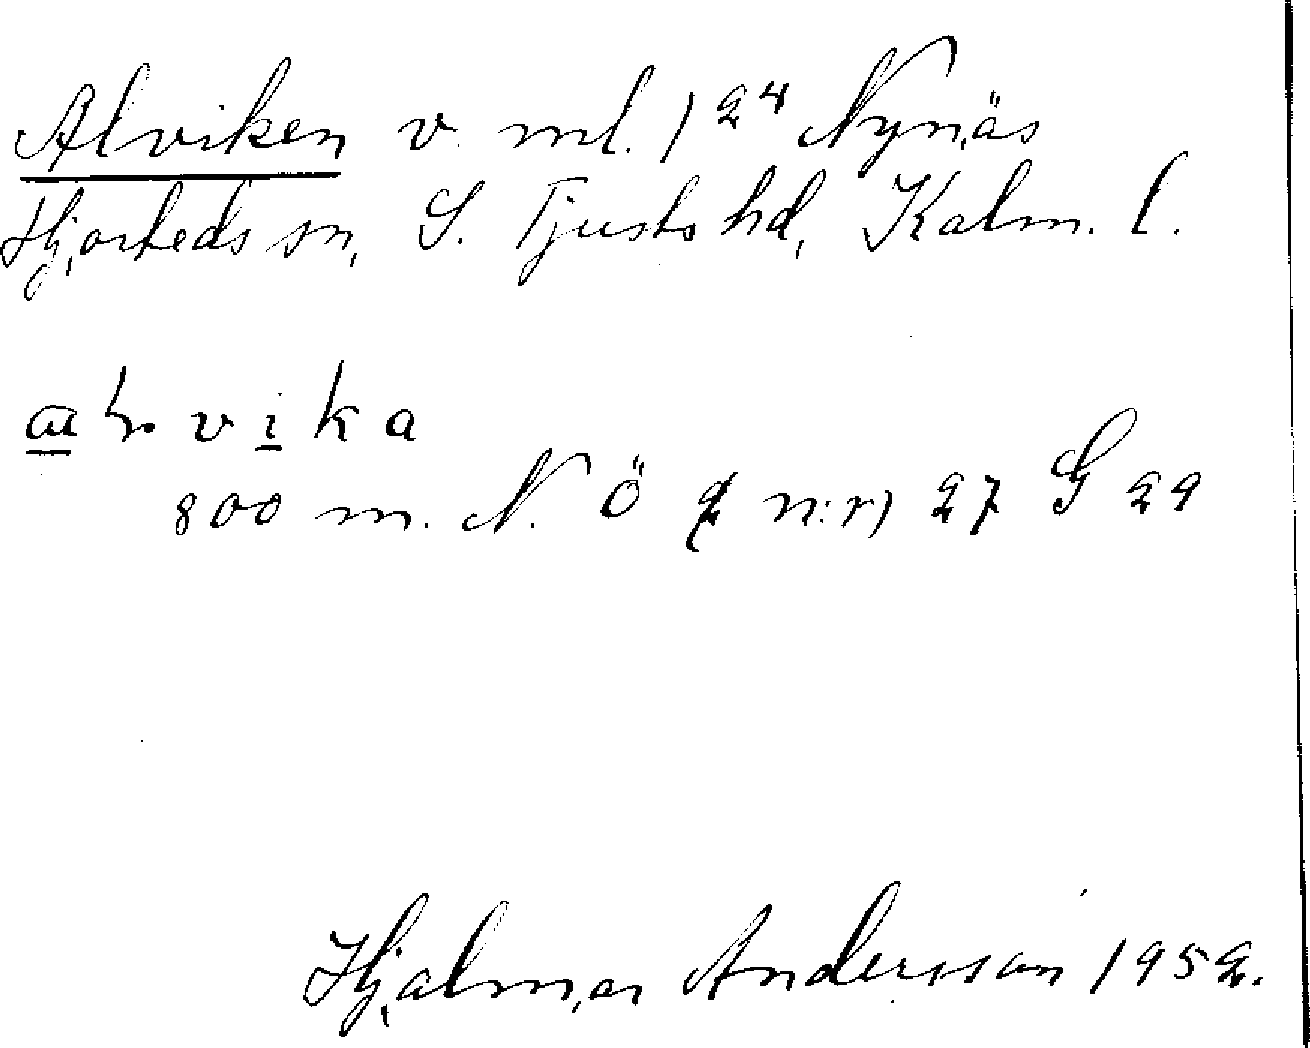 Alviken v. ml. 1²⁴ Nynäs
Hjorteds sn, S. Tjusts hd, Kalm. l.
vika
800 m. N. Ö n:r) 27 G 29
Hjalmar Andersson 1952.